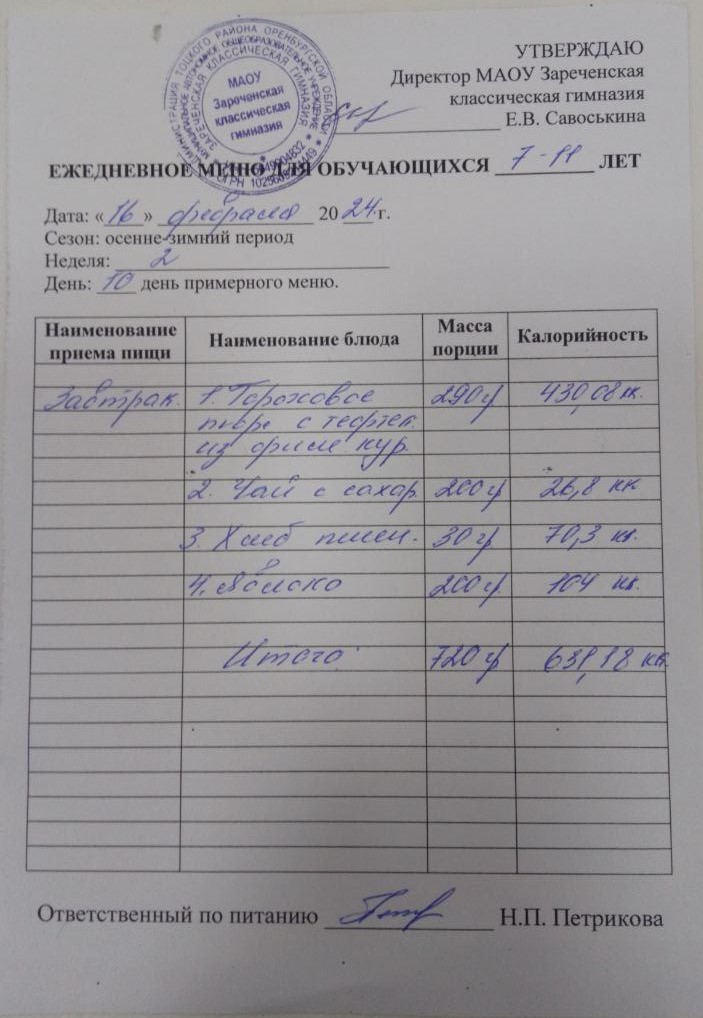 УТВЕРЖДАЮ
Директор МАОУ Зареченская
классическая гимназия
Е.В. Савоськина
МАОУ
Зареченская
классическая
гимназия
ЕЖЕДНЕВНОЕ МЕНЮ ДЛЯ ОБУЧАЮЩИХСЯ 7-11 ЛЕТ
Дата: «16» февраля 2024 г.
Сезон: осенне-зимний период
Неделя: 2
День: 10 день примерного меню.
Наименование приема пищи Наименование блюда Масса порции Калорийность
Завтрак. 1. Гороховое 290 гр 430,08 кк.
пюре с тефтел.
из филе кур.
2. Чай с сахар. 200 гр 26,8 кк
3. Хлеб пшен. 30 гр 70,3 кк.
4. Яблоко 200 гр 104 кк.
Итого: 720 гр 631,18 кк.
Ответственный по питанию Н.П. Петрикова